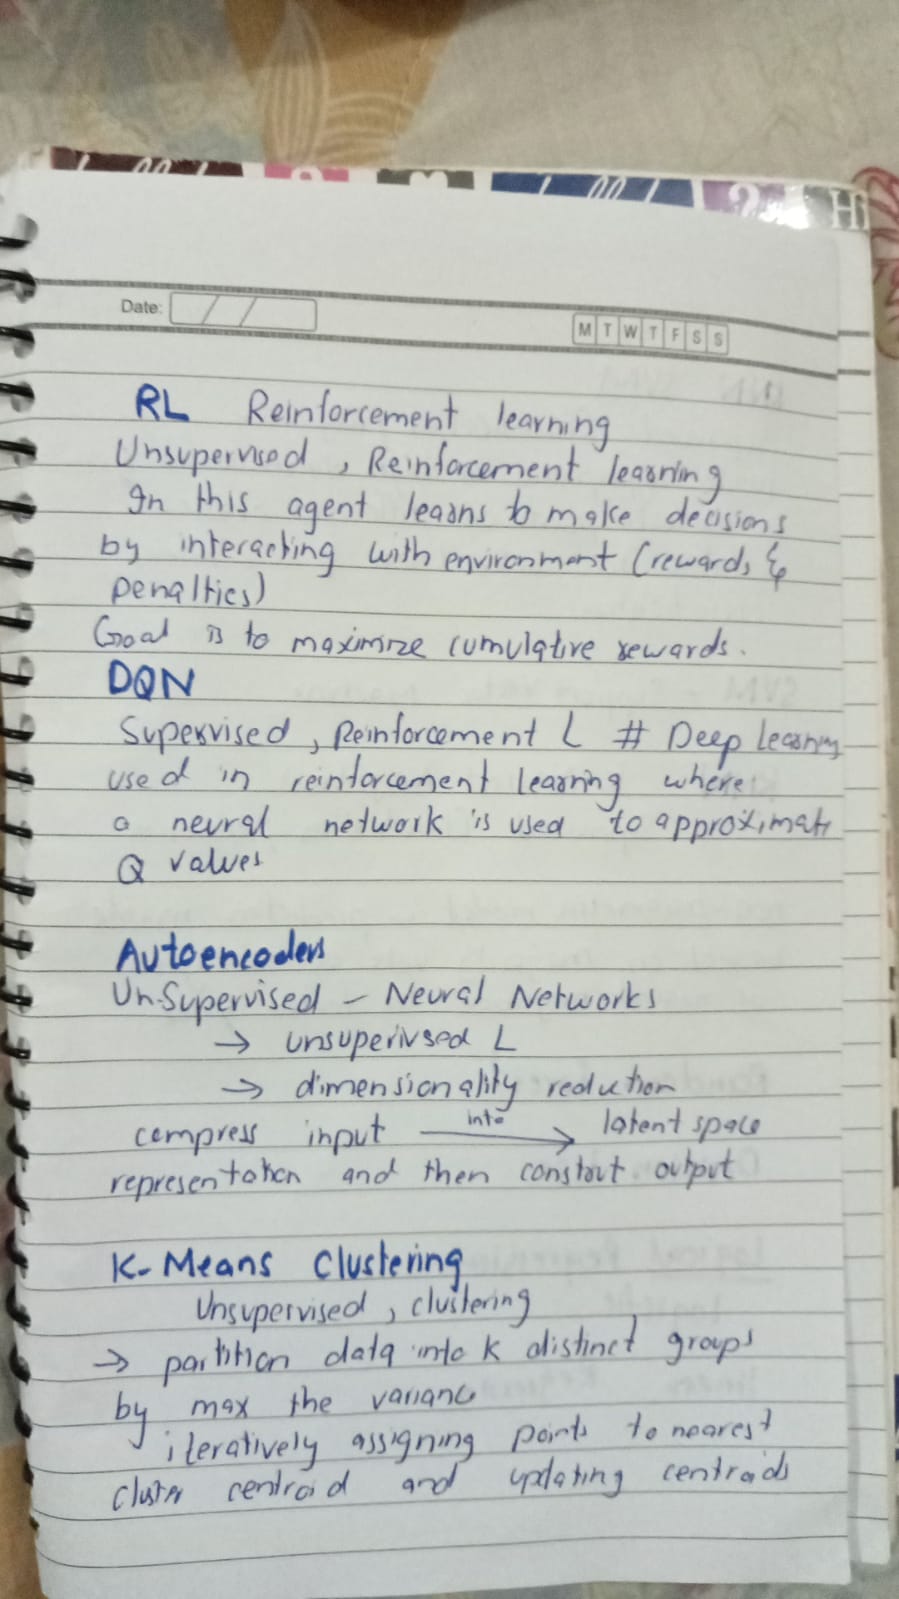 Hi
Date: / /
M T W T F S S
RL Reinforcement learning
Unsupervised, Reinforcement learning
In this agent learns to make decisions
by interacting with environment (rewards &
penalties)
Goal is to maximize cumulative rewards.
DQN
Supervised, Reinforcement L # Deep Learning
used in reinforcement learning where
a neural network is used to approximate
Q values
Autoencoders
Un-Supervised - Neural Networks
→ unsuperivsed L
→ dimensionality reduction
compress input into → latent space
representation and then constout output
K-Means Clustering
Unsupervised, clustering
→ partition data into K distinct groups
by max the variance
iteratively assigning points to nearest
cluster centroid and updating centroids